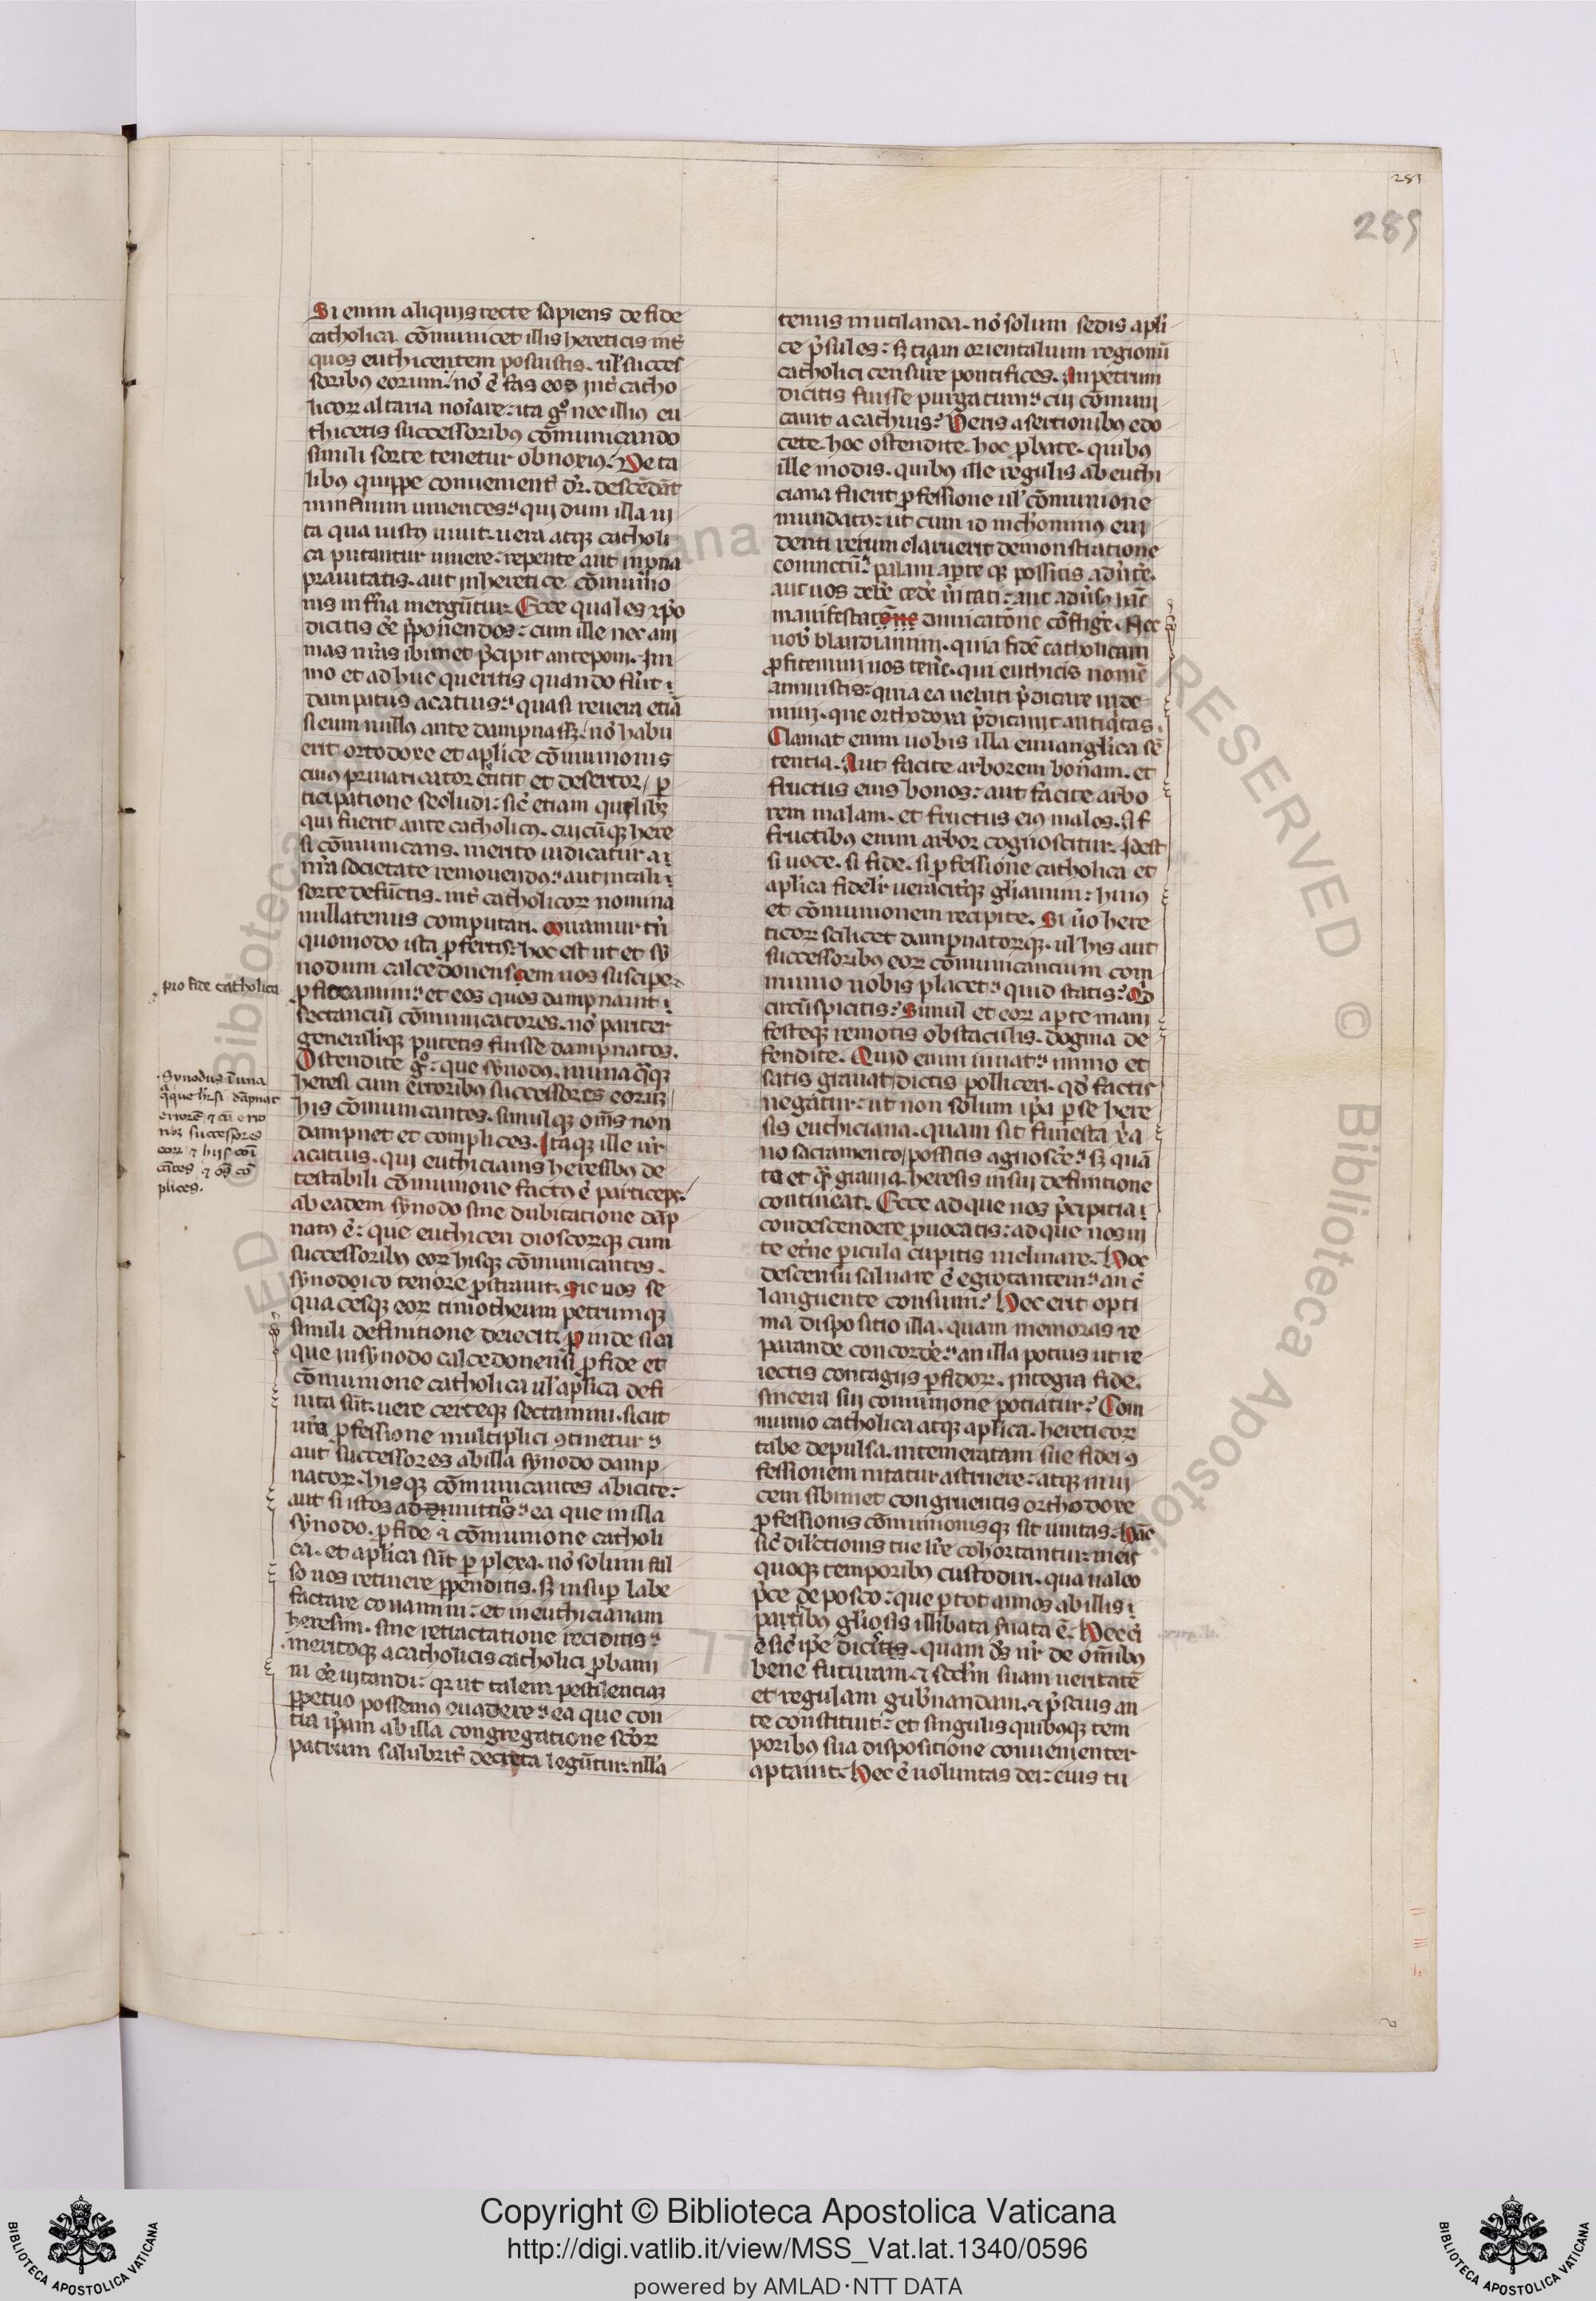 281
285
Si enim aliquis recte sapiens de fide
catholica cōmunicet illis hereticis int̄
quos euthicentem posuistis. ul' succes
soribꝰ eorum. nō ē fas eos int̄ catho
licoꝝ altaria noīare: ita gͦ nec illiꝰ eu
thicetis successoribꝰ cōmunicando
simili sorte tenetur obnoxiꝰ. De ta
libꝰ quippe conuenient̄ dr̄. descēdāt
in infernum uiuentes: qui dum illa ui
ta qua iustꝰ uiuit. uera atqꝫ catholi
ca putantur uiuere. repente aut inp̄na
prauitatis. aut in heretice cōmunio
nis infīa mergūtur. Ecce quales xp̄o
dicitis ēē p̄ponendos: cum ille nec ani
mas nr̄as ibimet p̄cipit anteponi. Im
mo et ad huc queritis quando fūit
dampatus acatius: quasi reuera etiā
si eum nullꝰ ante dampnassꝫ. nō habu
erit ortodoxe et ap̄lice cōmunionis
cuiꝰ priuaticator extitit et desertor / p̱
ticipatione secludi: sic̄ etiam quilibꝫ
qui fuerit ante catholicꝰ. cuicūqꝫ here
si cōmunicans. merito iudicatur a
nr̄a societate remouendꝰ: aut in tali
sorte defūctis. int̄ catholicoꝝ nomina
nullatenus computari. Conamur tn̄
quomodo ista ꝓfertis: hoc est ut et sy
nodum calcedonensem uos suscipe
ꝓ fide amini: et eos quos dampnauit
sectanciū cōmunicatores. nō pariter
generaliqꝫ putetis fuisse dampnatos.
Ostendite gͦ: que synodꝰ. in una q̄qꝫ
heresi cum erroribꝰ successores eorūꝫ
his cōmunicantes. simulqꝫ om̄s non
dampnet et complices. Itaqꝫ ille ur̄
acatius. qui euthicianis heresibꝰ de
testabili cōmunione factꝰ ē particeps.
ab eadem synodo sine dubitatione dāp
natꝰ ē: que euthicen dioscorqꝫ cum
successoribꝰ eoꝝ hisqꝫ cōmunicantes.
synodoico tenore ꝓstrauit. Sic uos se
quacesqꝫ eoꝝ timotheum petrumqꝫ
simili definitione deiecit. Proinde si ea
que in synodo calcedonensi ꝓ fide et
cōmunione catholica ul' ap̄lica defi
nita sūt. uere certeqꝫ sectamini. sicut
ur̄a ꝓfessione multiplici ꝯtinetur
aut successores ab illa synodo damp
natoꝝ. hisqꝫ cōmunicantes abicite:
aut si istos admittitis: ea que in illa
synodo. ꝓ fide ⁊ cōmunione catholi
ca. et ap̄lica sūt ꝓ plexa. nō solum fal
so uos retinere ꝓpenditis. sꝫ insup̱ labe
factare conamini: et in euthicianam
heresim. sine retractatione reciditis:
meritoqꝫ a catholicis catholici ꝓbam
ni ēē uitandi: qꝛ ut talem pestilentiaꝫ
p̱petuo possemꝰ euadere: ea que con
tra ip̄am ab illa congregatione sc̄oꝝ
patrum salubrit̄ decreta legūtur. nll'a
tenus mutilanda. nō solum sedis apl'i
ce p̄sules: sꝫ etiam orientalium regionū
catholici censuere pontifices. An petrum
dicitis fuisse purgatum: cui cōmuni
cauit acachius? Veris asertionibꝰ edo
cete. hoc ostendite. hoc ꝓbate. quibꝰ
ille modis. quibꝰ ille regulis ab euthi
ciana fuerit ꝓfessione ul' cōmunione
mundatꝰ: ut cum id inchoamꝰ eui
denti rerum claruerit demonstratione
conuictū: palam ap̱te qꝫ possitis aduc̄e.
aut uos debē cedē ūitati: aut adūsꝰ hāc
manifestacōne dimicatōne cōfligē. Nec
nob̄ blandiamini. quia fidē catholicam
ꝓfitemini uos tenē. qui euthicis nomē
annuistis: quia ea ueluti p̄dicare uide
mini. que orthodoxa p̄dicauit antiq̄tas.
Clamat enim uobis illa euuanglica sē
tentia. Aut facite arborem bonam. et
fructus eius bonos: aut facite arbo
rem malam. et fructus eiꝰ malos. A f
fructibꝰ enim arbor cognoscitur. Id est
si uoce. si fide. si ꝓfessione catholica et
apl'ica fidelr̄ ueraciterqꝫ gl'iamini: huiꝰ
et cōmunionem recipite. Si ūo here
ticoꝝ scilicet dampnatorqꝫ. ul' his aut
successoribꝰ eoꝝ cōmunicancium com
munio nobis placet: quid statis? Qd̄
circūspicitis? Simul et eoꝝ ap̱te mani
festeqꝫ remotis obstaculis. dogma de
fendite. Quid enim iuuat: immo et
satis grauat / dictis polliceri. qd̄ factis
negatur: ut non solum ip̄a p̱ se here
sis euthiciana. quam sit funesta xp̄a
no sacramento / possitis agnoscē: sꝫ quā
ta et q̄ graui a. heresis in sui definitione
contineat. Ecce ad que nos p̄cipitia
condescendere ꝓuocatis: ad que nos ui
te et̄ne p̱icula cupitis inclinare. Hoc
descensu saluare ē egrotantem: an ē
languente consumi? Hec erit opti
ma dispositio illa. quam memoras re
parande concordē: an illa potius ut re
iectis contagiis p̱fidoꝝ. integra fide.
sincera sui cōmunione potiatur? Com
munio catholica atqꝫ apl'ica. hereticoꝝ
tabe depulsa. intemeratam sue fidei ꝯ
fessionem nitatur astruere: atqꝫ inui
cem sibimet congruentis orthodoxe
ꝓfessionis cōmunionisqꝫ sit unitas. Hāc
sic̄ dil'ctionis tue lr̄e cohortantur. meis
quoqꝫ temporibꝰ custodiri. qua ualeo
p̄ce deposco: que p̱ tot annos ab illis
partibꝰ gl'iosis illibata s̄uata ē. Hec ei
ē sic̄ ip̄e dicitis. quam ds̄ nr̄ de om̄ibꝰ
bene futuram. ⁊ scd̄m suam ueritatē
et regulam gub̄nandam. ⁊ p̄scius an
te constituit: et singulis quibꝰqꝫ tem
poribꝰ sua dispositione conuenienter
aptauit. Hec ē uoluntas dei: eius tu
pro fide catholica
Synodus ī una
q̄que h̄rsi dāpnat
errorē ⁊ cū erro
ribꝫ successores
eoꝝ ⁊ hijs cōī
cātes ⁊ oēs cō
plices.
BIBLIOTECA APOSTOLICA VATICANA
Copyright © Biblioteca Apostolica Vaticana
http://digi.vatlib.it/view/MSS_Vat.lat.1340/0596
powered by AMLAD·NTT DATA
BIBLIOTECA APOSTOLICA VATICANA